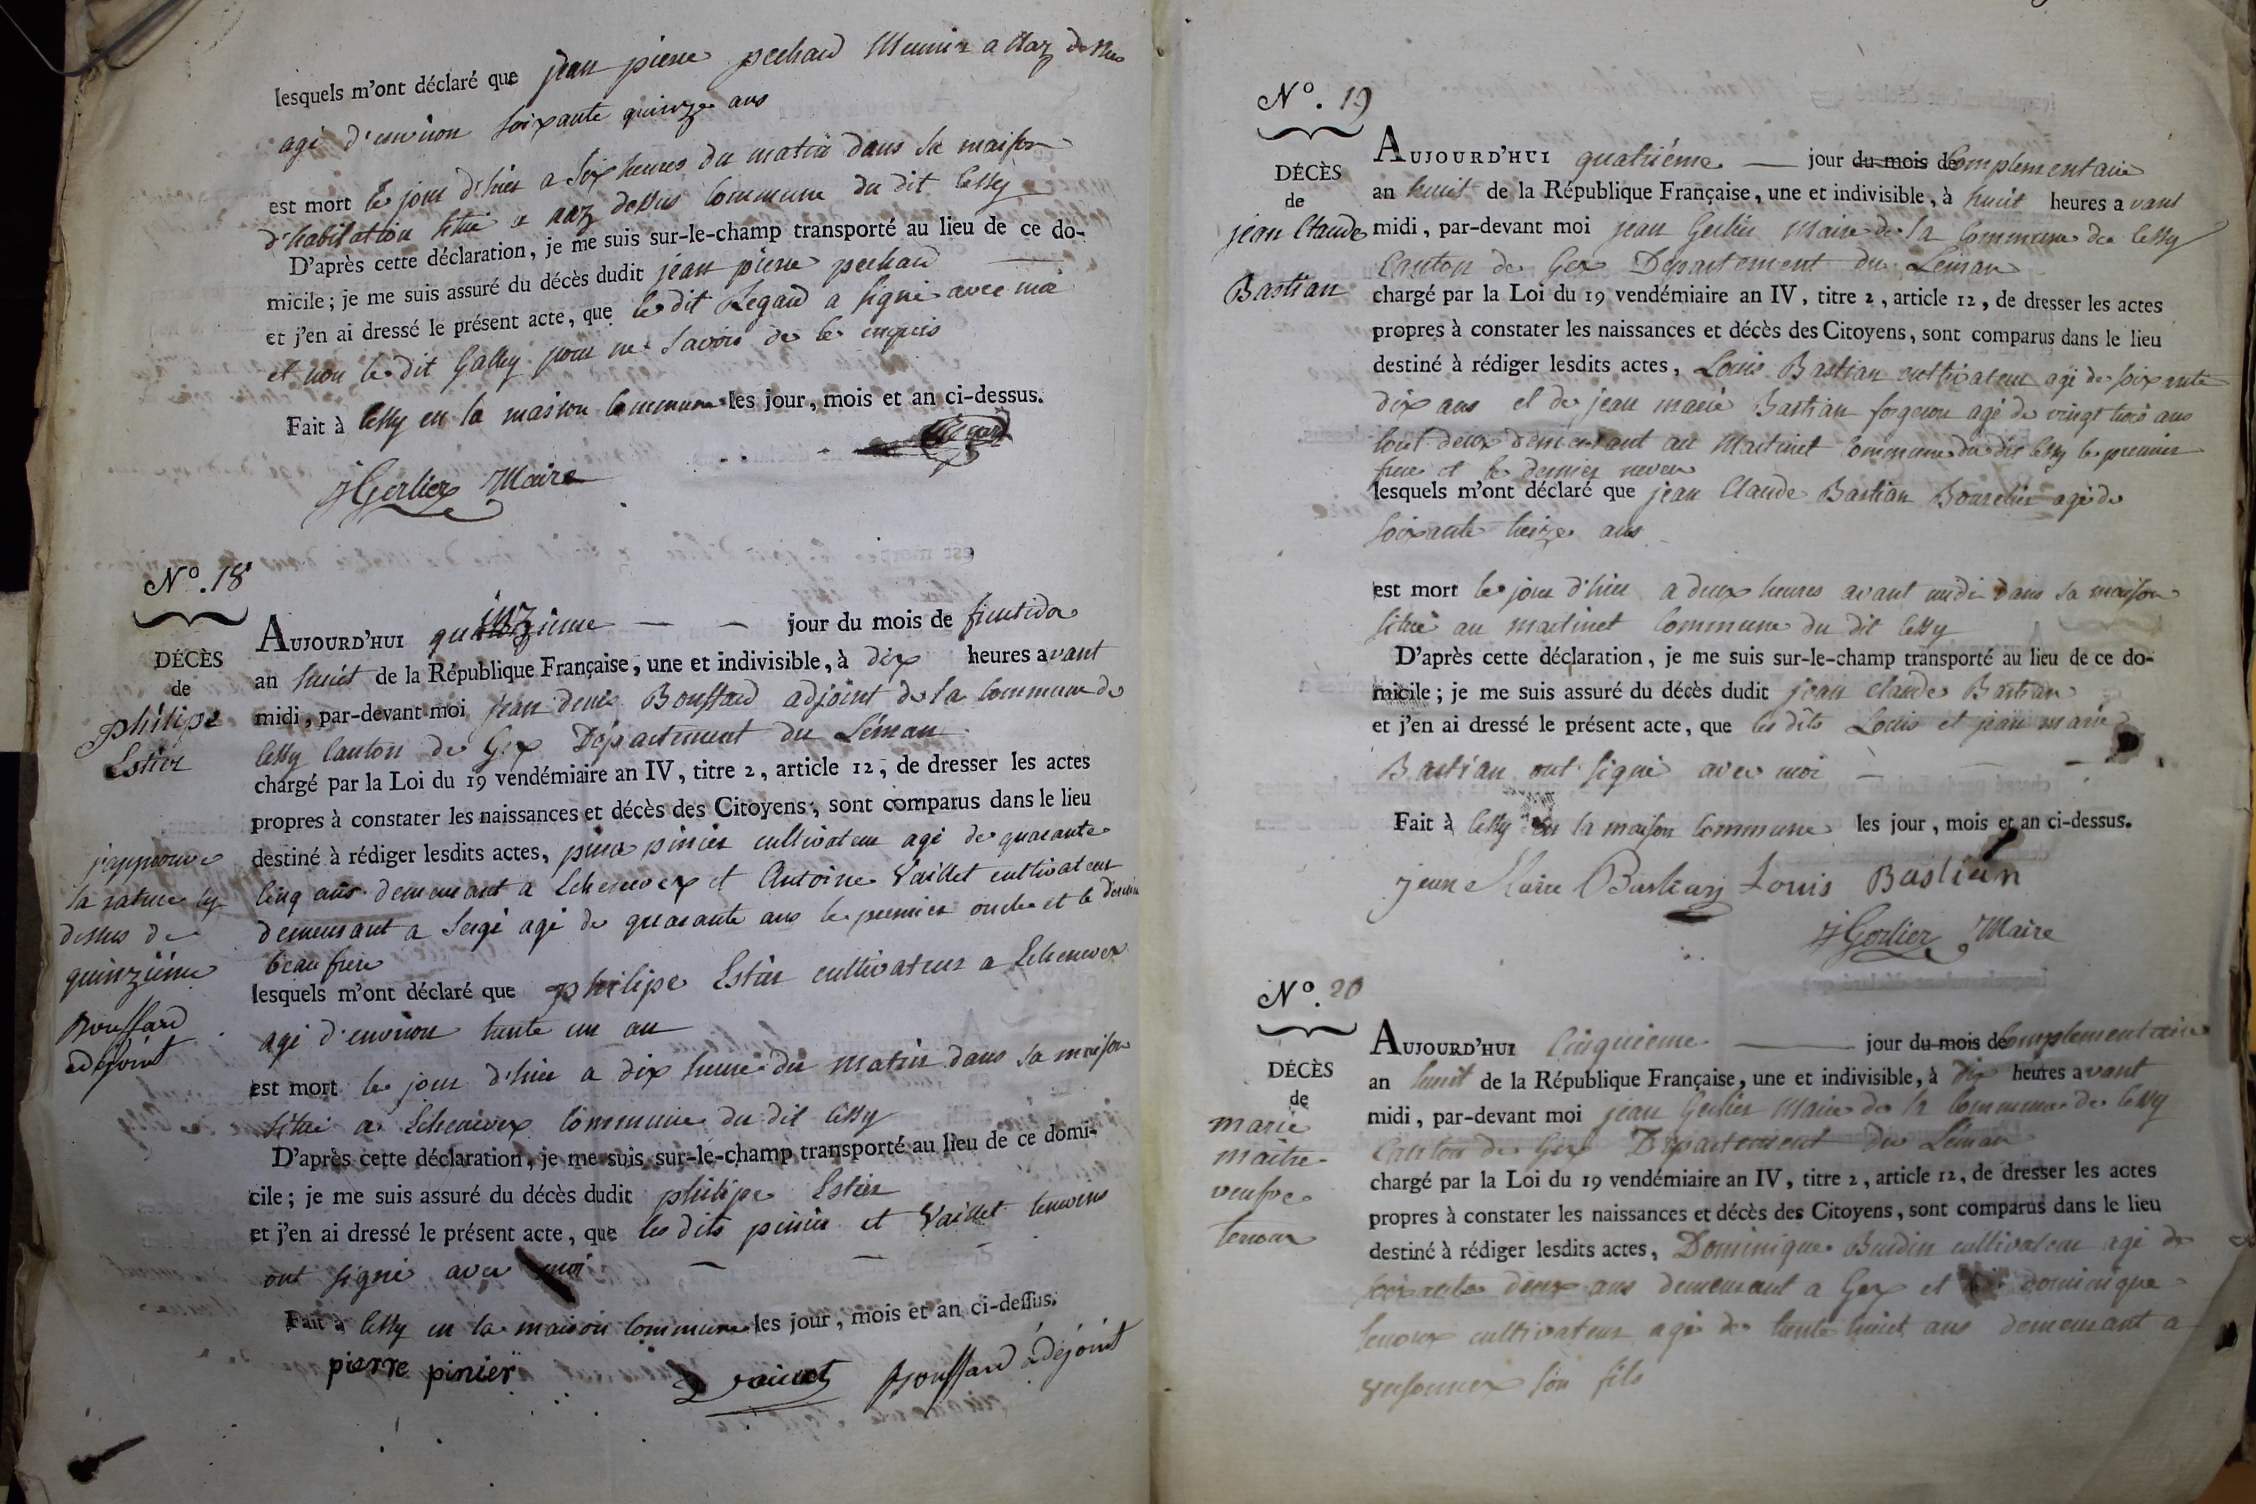 lesquels m'ont déclaré que jean pierre pechard Munier a Naz dessus
agé d'environ soixante quinze ans
est mort le jour d'hier a six heures du matin dans sa maison
d'habitation situé a naz dessus Commune du dit Cessy
D'après cette déclaration, je me suis sur-le-champ transporté au lieu de ce do-
micile; je me suis assuré du décès dudit jean pierre pechard
et j'en ai dressé le présent acte, que le dit Regard a signé avec moi
et non le dit Gally pour ne savoir de ce enquis
Fait à Cessy en la maison Commune les jour, mois et an ci-dessus.
Regard
JGerlier Maire
N°. 18
DÉCÈS
de
philipe
Estier
j'approuve
la rature cy
dessus de
quinzième
Bouffard
adejoint
AUJOURD'HUI quinzième jour du mois de fructidor
an huit de la République Française, une et indivisible, à dix heures avant
midi, par-devant moi jean denis Bouffard adjoint de la Commune de
Cessy Canton de Gex Département du Léman
chargé par la Loi du 19 vendémiaire an IV, titre 2, article 12, de dresser les actes
propres à constater les naissances et décès des Citoyens, sont comparus dans le lieu
destiné à rédiger lesdits actes, pierre pinier cultivateur agé de quarante
Cinq ans demeurant a Echenevex et Antoine Vaillet cultivateur
demeurant a Sergi agé de quarante ans le premier oncle et le dernier
beau frere
lesquels m'ont déclaré que philipe Estier cultivateur a Echenevex
agé d'environ trente un an
est mort le jour d'hier a dix heure du matin dans sa maison
située a Echenevex Commune du dit Cessy
D'après cette déclaration, je me suis sur-le-champ transporté au lieu de ce domi-
cile; je me suis assuré du décès dudit philipe Estier
et j'en ai dressé le présent acte, que les dits pinier et Vaillet temoins
ont signé avec moi
Fait à Cessy en la maison Commune les jour, mois et an ci-dessus.
pierre pinier Vaillet Bouffard adejoint
N°. 19
DÉCÈS
de
jean Claude
Bastian
AUJOURD'HUI quatrième jour du mois de Complementaire
an huit de la République Française, une et indivisible, à huit heures avant
midi, par-devant moi jean Gerlier Maire de la Commune de Cessy
Canton de Gex Département du Léman
chargé par la Loi du 19 vendémiaire an IV, titre 2, article 12, de dresser les actes
propres à constater les naissances et décès des Citoyens, sont comparus dans le lieu
destiné à rédiger lesdits actes, Louis Bastian cultivateur agé de soixante
dix ans et de jean marie Bastian forgeron agé de vingt trois ans
tout deux demeurant au Martinet Commune du dit Cessy le premier
frere et le dernier neveu
lesquels m'ont déclaré que jean Claude Bastian Bourelier agé de
soixante treize ans
est mort le jour d'hier a deux heures avant midi dans sa maison
située au martinet Commune du dit Cessy
D'après cette déclaration, je me suis sur-le-champ transporté au lieu de ce do-
micile; je me suis assuré du décès dudit jean claude Bastian
et j'en ai dressé le présent acte, que les dits Louis et jean marie
Bastian ont signé avec moi
Fait à Cessy en la maison Commune les jour, mois et an ci-dessus.
jean Marie Bastian Louis Bastian
JGerlier Maire
N°. 20
DÉCÈS
de
marie
maitre
veufve
lenoux
AUJOURD'HUI Cinquieme jour du mois de Complementaire
an huit de la République Française, une et indivisible, à dix heures avant
midi, par-devant moi jean Gerlier Maire de la Commune de Cessy
Canton de Gex Département du Léman
chargé par la Loi du 19 vendémiaire an IV, titre 2, article 12, de dresser les actes
propres à constater les naissances et décès des Citoyens, sont comparus dans le lieu
destiné à rédiger lesdits actes, Dominique Burdin cultivateur agé de
soixante deux ans demeurant a Gex et dominique
lenoux cultivateur agé de trente huit ans demeurant a
Vesonnex son fils